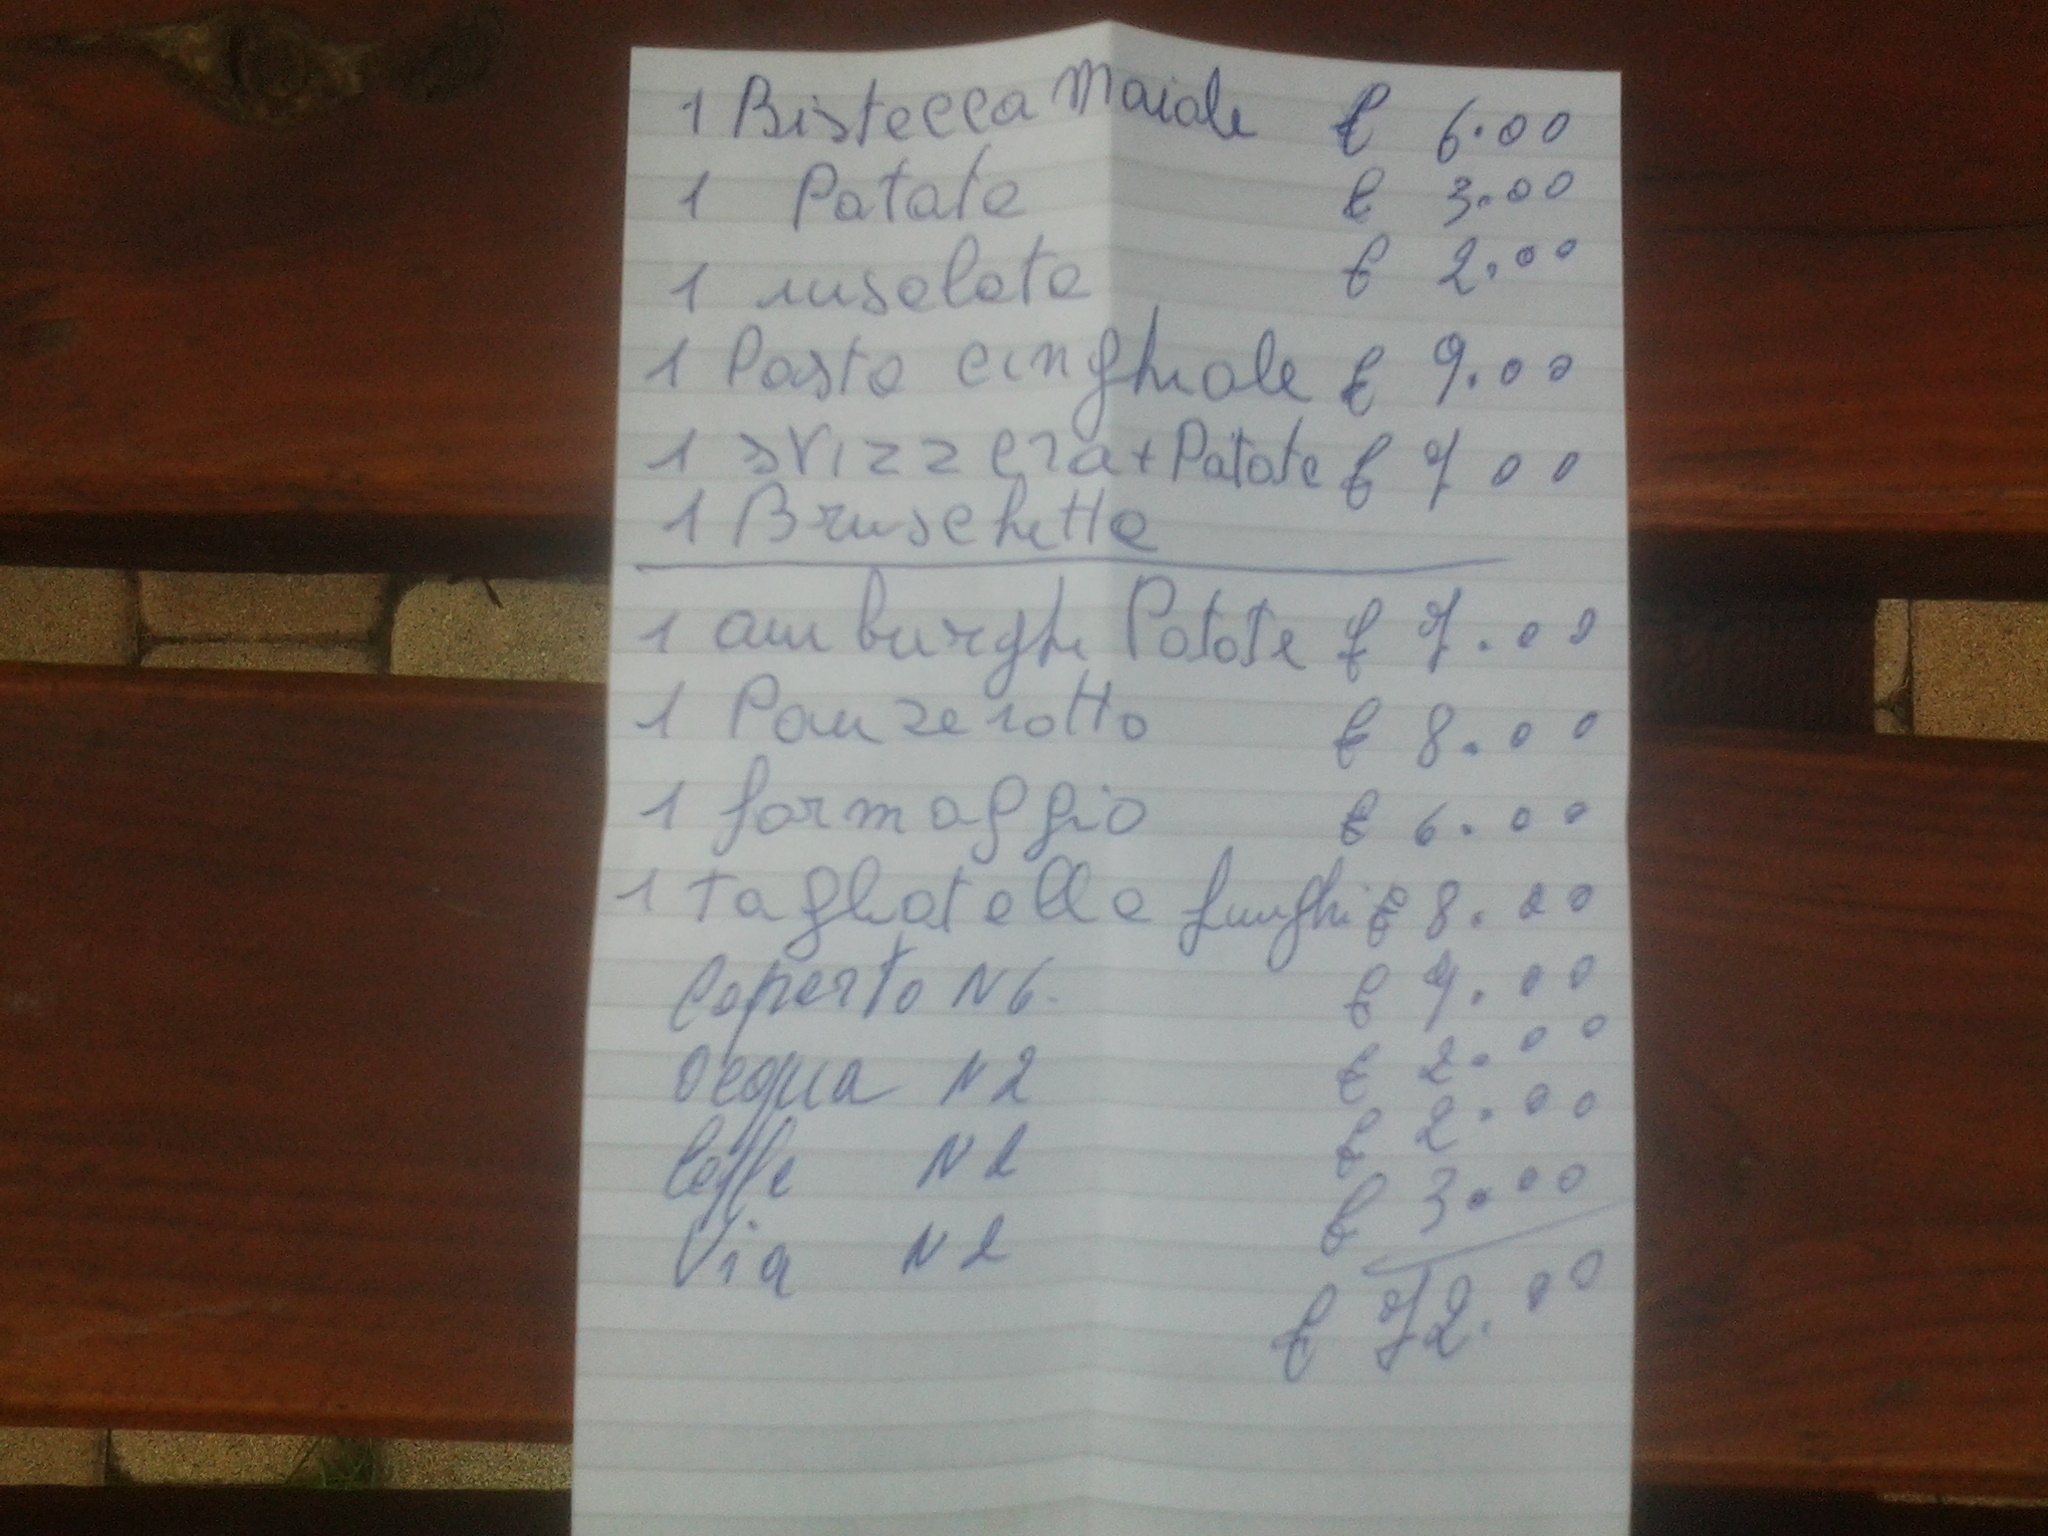 1 Bistecca Maiale € 6.00
1 Patate € 3.00
1 insalata € 2.00
1 Pasta cinghiale € 9.00
1 svizzera + Patate € 7 00
1 Bruschetta
1 amburghi Patate € 7.00
1 Panzerotto € 8.00
1 formaggio € 6.00
1 Tagliatelle funghi € 8.00
Coperto N 6. € 9.00
acqua N 2 € 2.00
Caffe N 2 € 2.00
Via N 2 € 3.00
€ 72.00